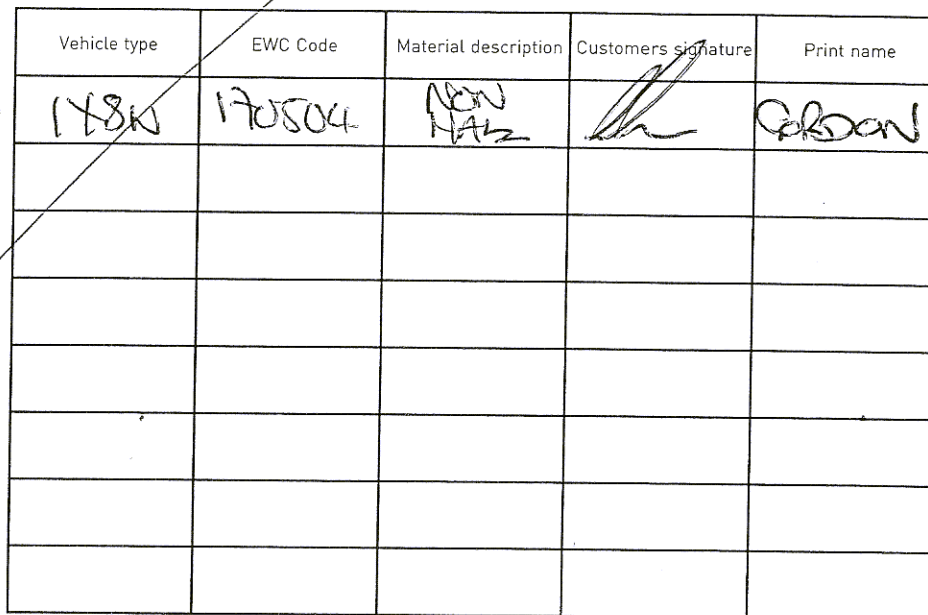 Vehicle type EWC Code Material description Customers signature Print name
1X8W 170504 NON HAZ GORDON